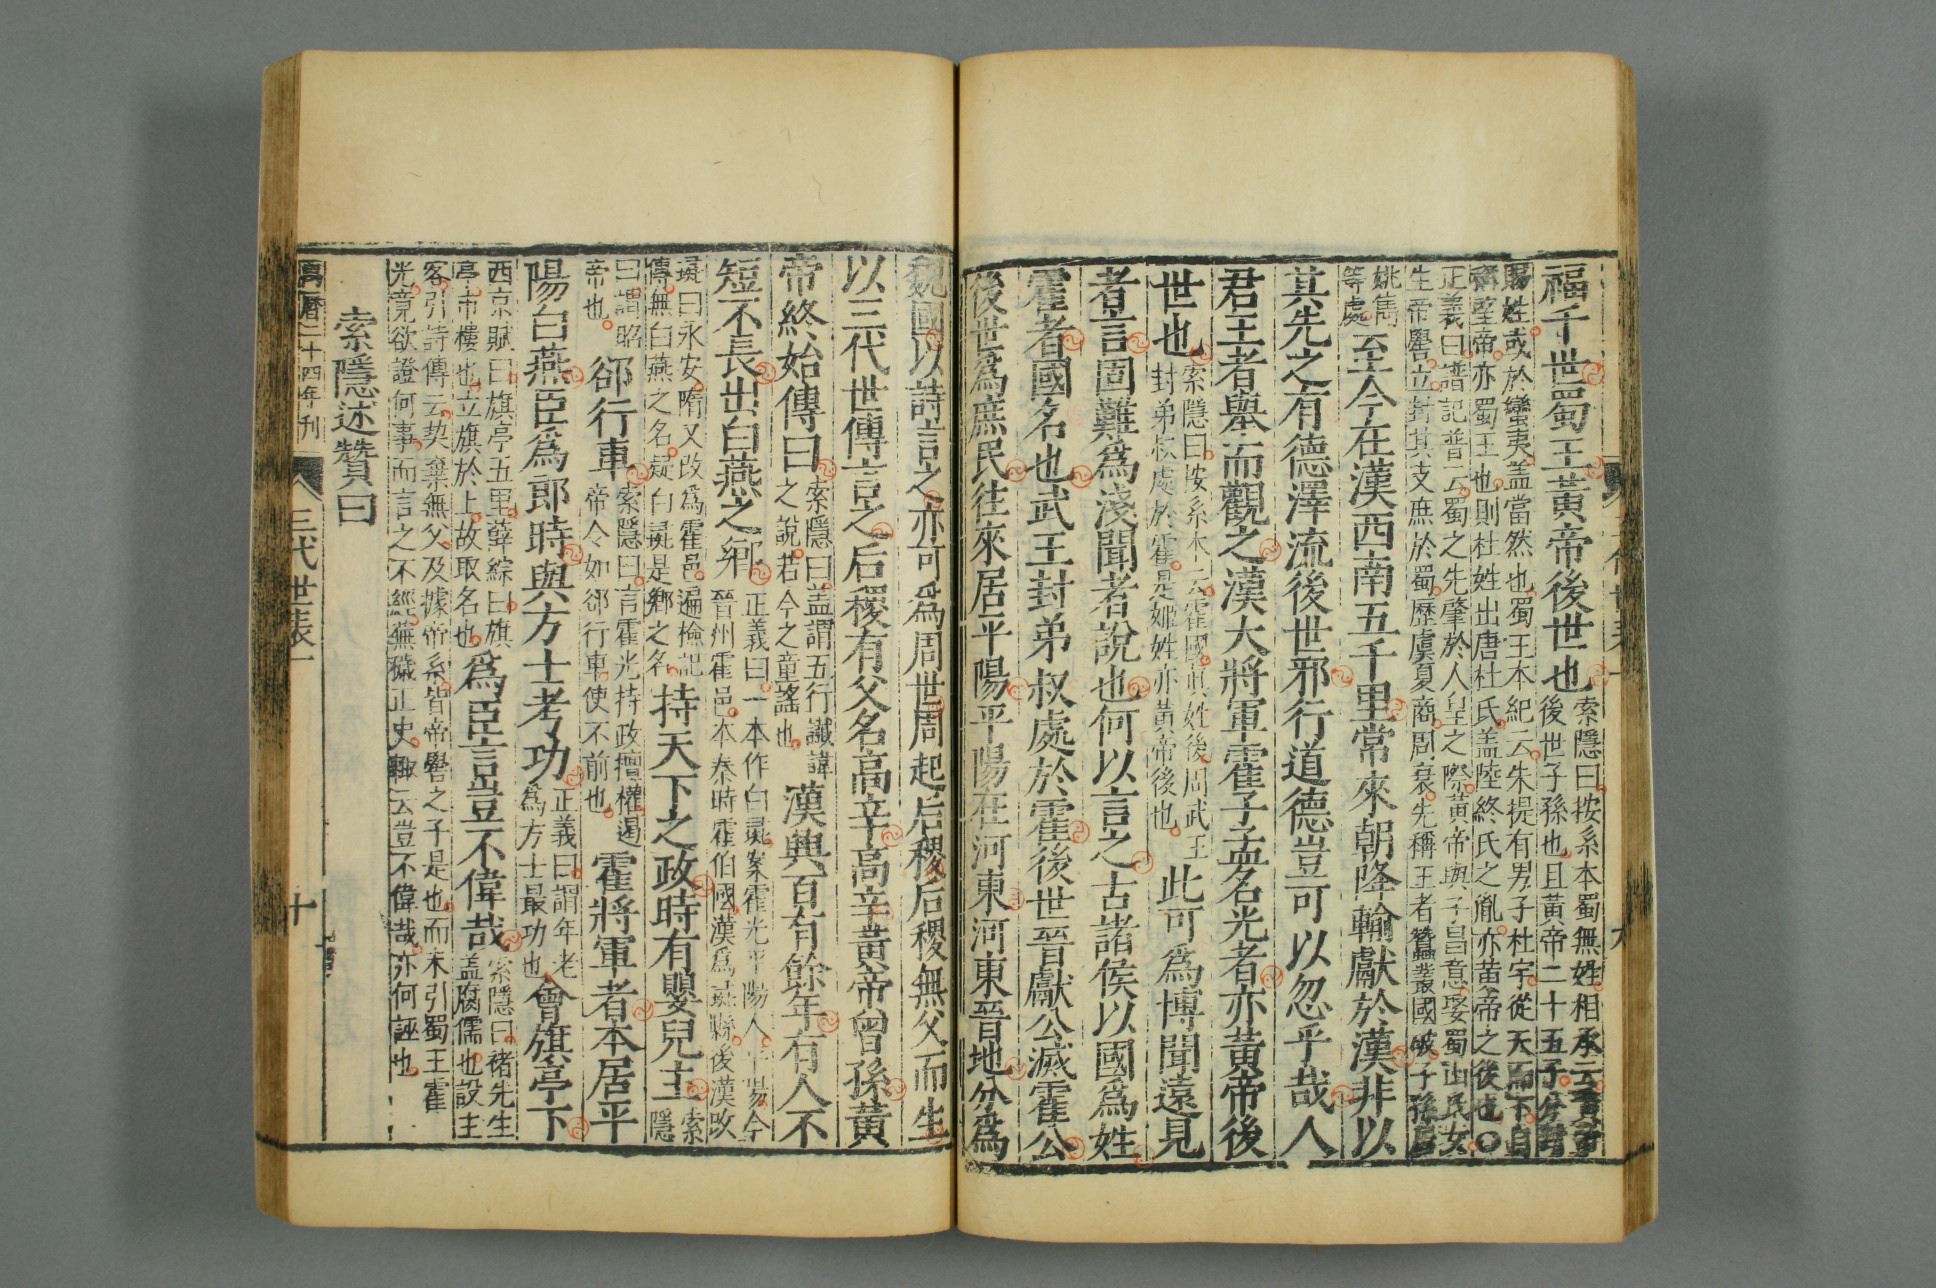 福千世蜀王黃帝後世也
索隱曰按系本蜀無姓相承云黃帝
後世子孫也且黃帝二十五子分封
賜姓或於蠻夷蓋當然也蜀王本紀云朱提有男子杜宇從天而下自
稱望帝亦蜀王也則杜姓出唐杜氏蓋陸終氏之胤亦黃帝之後也〇
正義曰譜記普云蜀之先肇於人皇之際黃帝與子昌意娶蜀山氏女
生帝嚳立封其支庶於蜀歷虞夏商周衰先稱王者蠶叢國破子孫居
姚雋
等處
至今在漢西南五千里常來朝降輸獻於漢非以
其先之有德澤流後世邪行道德豈可以忽乎哉人
君王者舉而觀之漢大將軍霍子孟名光者亦黃帝後
世也
索隱曰按系本云霍國眞姓後周武王
封弟叔處於霍是姬姓亦黃帝後也
此可為博聞遠見
者言固難為淺聞者說也何以言之古諸侯以國為姓
霍者國名也武王封弟叔處於霍後世晉獻公滅霍公
後世為庶民往來居平陽平陽在河東河東晉地分為
魏國以詩言之亦可為周世周起后稷后稷無父而生
以三代世傳言之后稷有父名高辛高辛黃帝曾孫黃
帝終始傳曰
索隱曰蓋謂五行讖諱
之說若今之童謠也
漢興百有餘年有人不
短不長出白燕之鄉
正義曰一本作白彘案霍光平陽人平陽今
晉州霍邑本秦時霍伯國漢為彘縣後漢改
彘曰永安隋又改為霍邑遍檢記
傳無白燕之名疑白彘是鄉之名
持天下之政時有嬰兒主
索
隱
曰謂昭
帝也
郤行車
索隱曰言霍光持政擅權逼
帝令如郤行車使不前也
霍將軍者本居平
陽白燕臣為郎時與方士考功
正義曰謂年老
為方士最功也
會旗亭下
西京賦曰旗亭五里薛綜曰旗
亭市樓也立旗於上故取名也
為臣言豈不偉哉
索隱曰褚先生
蓋腐儒也設主
客引詩傳云契棄無父及據帝系皆帝嚳之子是也而末引蜀王霍
光竟欲證何事而言之不經蕪穢正史輒云豈不偉哉亦何誣也
索隱述贊曰
萬曆二十四年刊
三代世表一
十